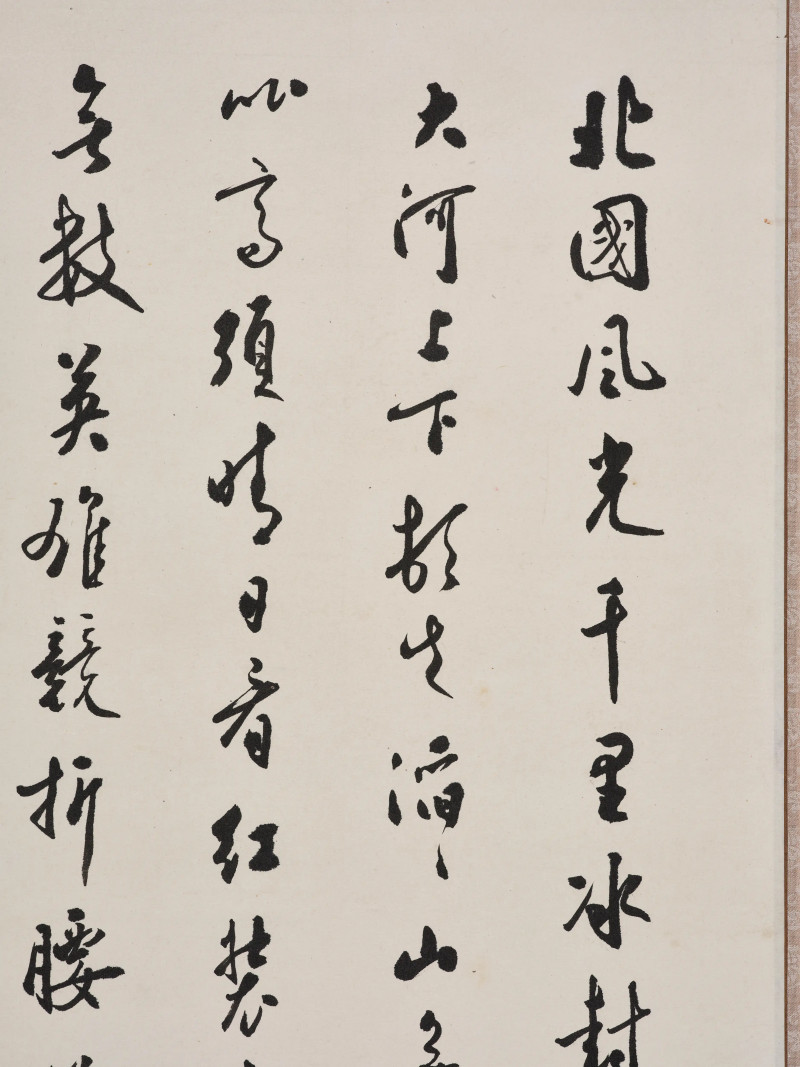 北國風光千里冰封
大河上下頓失滔〻山
比高須晴日看紅裝
無數英雄競折腰